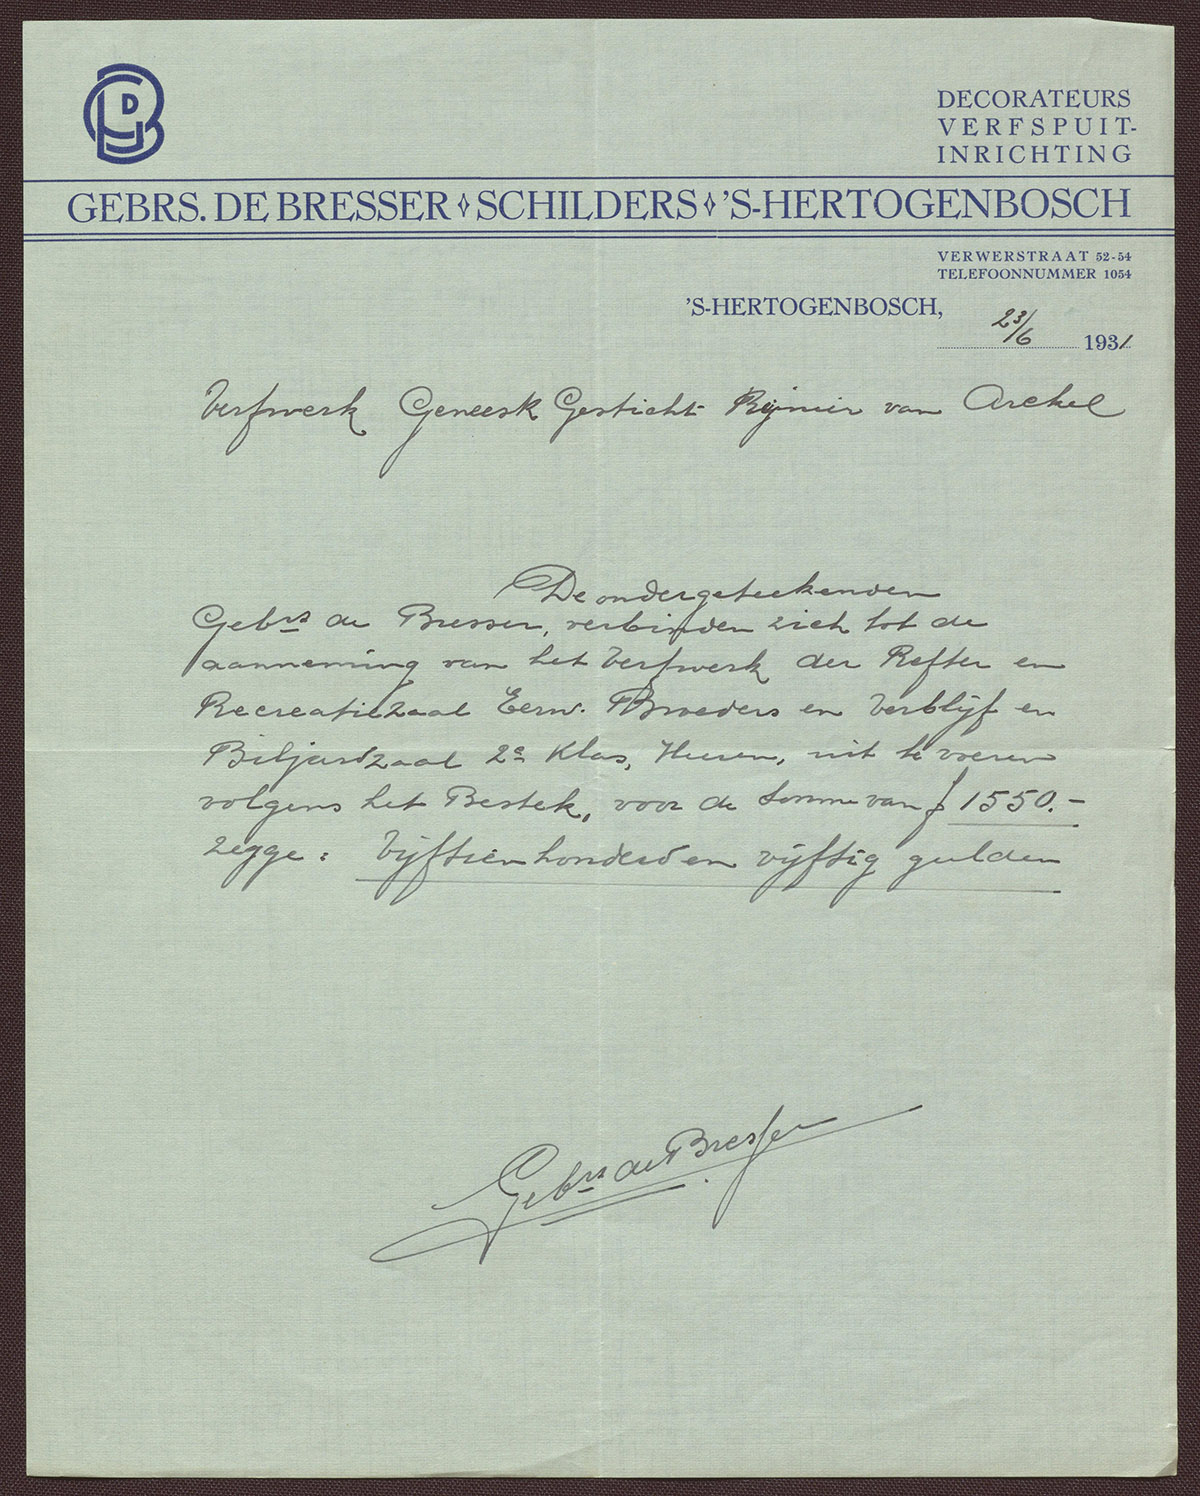 DECORATEURS
VERFSPUIT-
INRICHTING
GEBRS. DE BRESSER ◊ SCHILDERS ◊ 'S-HERTOGENBOSCH
VERWERSTRAAT 52-54
TELEFOONNUMMER 1054
'S-HERTOGENBOSCH, 23/6 1931
Verfwerk Geneesk Gesticht Rijnier van Arckel
De ondergeteekenden
Gebrs de Bresser, verbinden zich tot de
aanneming van het Verfwerk der Refter en
Recreatiezaal Eerw. Broeders en Verblijf en
Biljardzaal 2e Klas, Heeren, uit te voeren
volgens het Bestek, voor de somme van ƒ 1550.-
zegge: Vijftienhonderd en vijftig gulden
Gebrs de Bresser